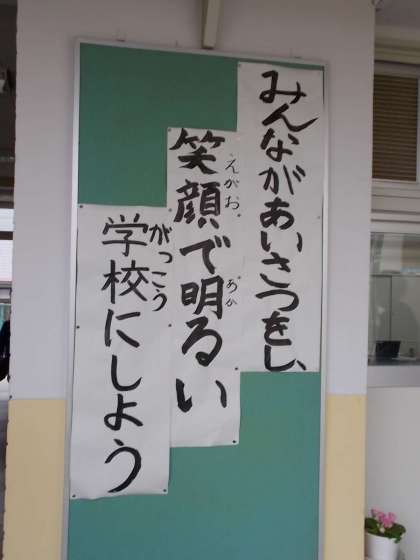 みんながあいさつをし、
笑顔で明るい
えがお
あか
学校にしよう
がっこう